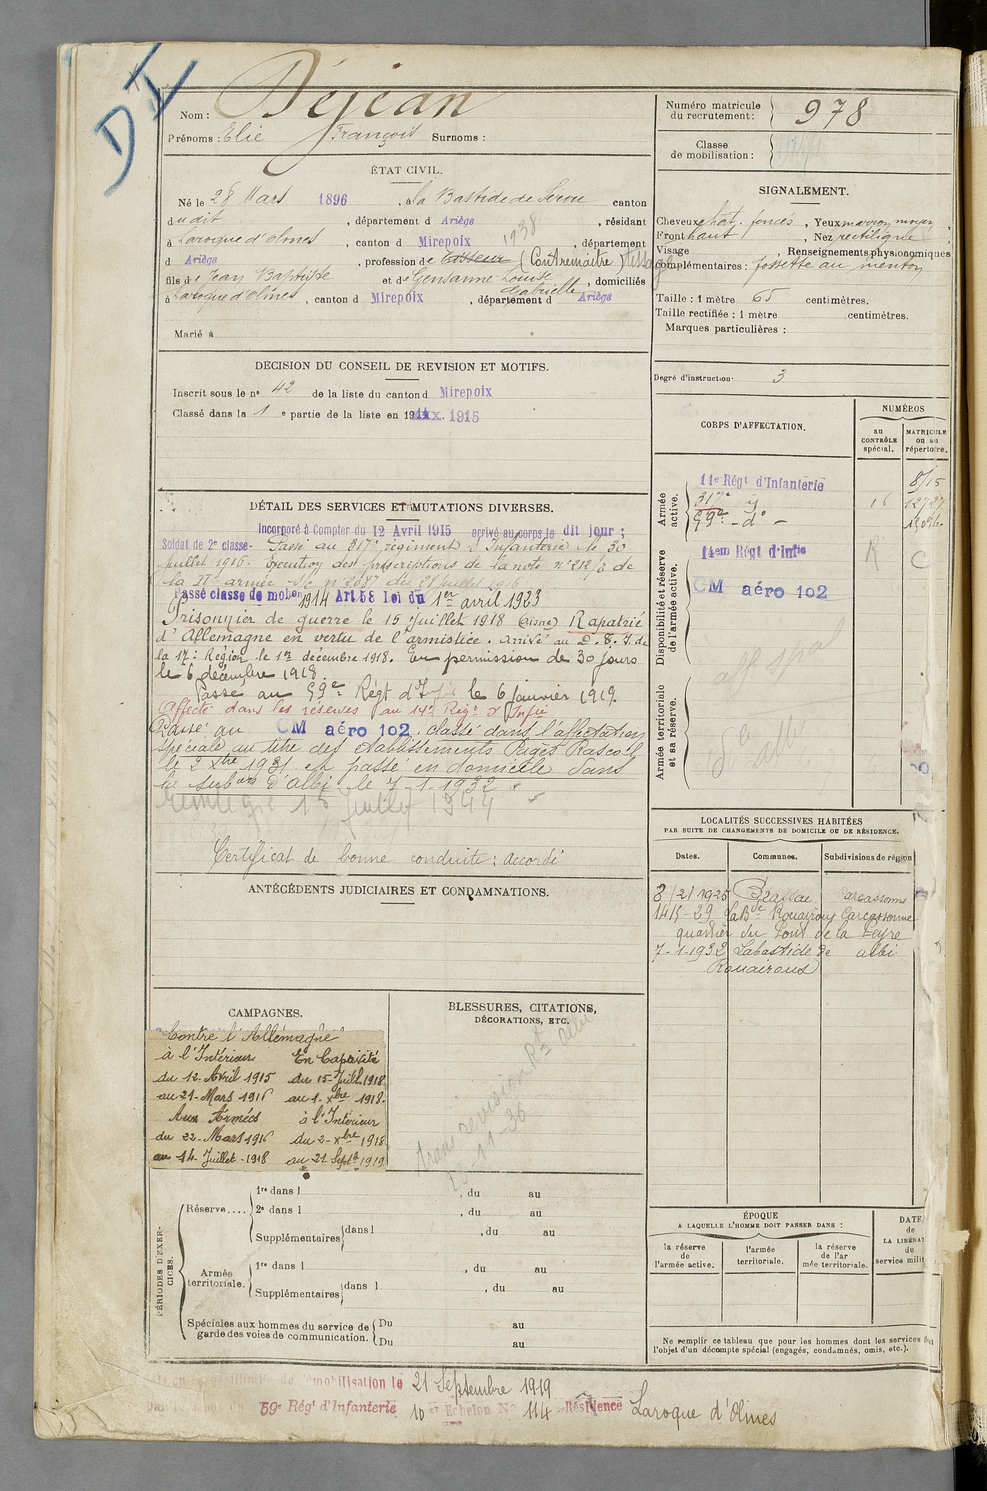 DI
Nom : Déjean
Prénoms : Elie François Surnoms :
Numéro matricule du recrutement : 978
Classe de mobilisation :
ÉTAT CIVIL.
Né le 28 Mars 1896, à La Bastide de Sérou canton
dudit, département d Ariège, résidant
à Laroque d'Olmes, canton d Mirepoix 1938, département
d Ariège, profession de tisseur (Contremaître) tissage
fils de Jean Baptiste et de Gensanne Louise Gabrielle, domiciliés
à Laroque d'Olmes, canton d Mirepoix, département d Ariège
Marié à
SIGNALEMENT.
Cheveux chat. foncés, Yeux marron moyen,
Front haut, Nez rectiligne
Visage, Renseignements physionomiques
complémentaires : fossette au menton
Taille : 1 mètre 65 centimètres.
Taille rectifiée : 1 mètre centimètres.
Marques particulières :
Degré d'instruction. 3
DECISION DU CONSEIL DE REVISION ET MOTIFS.
Inscrit sous le n° 42 de la liste du canton d Mirepoix
Classé dans la 1 e partie de la liste en 1915
DÉTAIL DES SERVICES ET MUTATIONS DIVERSES.
Incorporé à Compter du 12 Avril 1915 arrivé au corps le dit jour ;
Soldat de 2e classe. Passé au 317e régiment d'Infanterie le 30
juillet 1916. Exécution des prescriptions de la note n° 212/3 de
la IIe armée
Passé classe de mob on 1914 Art 58 Loi du 1er avril 1923
Prisonnier de guerre le 15 juillet 1918 (Aisne) Rapatrié
d'Allemagne en vertu de l'armistice. Arrivé au D.S.I. de
la 17e Région le 1er décembre 1918. En permission de 30 jours
le 6 décembre 1918.
Passé au 59e Régt d'Ifie le 6 janvier 1919.
Affecté dans les réserves au 14e Régt d'Infie
Passé au CM aéro 102. classé dans l'affectation
spéciale au titre des établissements Pagès Rascol
le 2 Xbre 1931 est passé en domicile dans
la subon d'Albi le 7-1-1932
15 juillet 1944
Certificat de bonne conduite : accordé
CORPS D'AFFECTATION.
NUMÉROS
au CONTRÔLE spécial.
MATRICULE ou au répertoire.
Armée active.
11e Régt d'Infanterie 8/15
317e d° 16 12727
59e - d° -
Disponibilité et réserve de l'armée active.
14em Régt d'Infie R C
CM aéro 102
aff spal
Armée territoriale et sa réserve.
LOCALITÉS SUCCESSIVES HABITÉES
PAR SUITE DE CHANGEMENTS DE DOMICILE OU DE RÉSIDENCE.
Dates. Communes. Subdivisions de région
8/2/1925 Brassac Carcassonne
14-5-29 LaBde Rouairoux Carcassonne
quartier du Pont de la Peyre
7-1-1932 Labastide de albi
Rouairoux
ANTÉCÉDENTS JUDICIAIRES ET CONDAMNATIONS.
CAMPAGNES.
Contre l'Allemagne
à l'Intérieur En Captivité
du 12-Avril 1915 du 15-Juill. 1918
au 21-Mars 1916 au 1-Xbre 1918.
Aux Armées à l'Intérieur
du 22-Mars 1916 du 2-Xbre 1918
au 14-Juillet-1918 au 21 Septe 1919
BLESSURES, CITATIONS, DÉCORATIONS, ETC.
PÉRIODES D'EXERCICES.
Réserve.... 1re dans l, du au
2e dans l, du au
Supplémentaires dans l, du au
Armée territoriale. 1re dans l, du au
Supplémentaires dans l, du au
Spéciales aux hommes du service de garde des voies de communication. Du au
Du au
ÉPOQUE
A LAQUELLE L'HOMME DOIT PASSER DANS :
la réserve de l'armée active.
l'armée territoriale.
la réserve de l'armée territoriale.
DATE de LA LIBÉRAT du service milit
Ne remplir ce tableau que pour les hommes dont les services font l'objet d'un décompte spécial (engagés, condamnés, omis, etc.).
démobilisation le 21 Septembre 1919
59e Régt d'Infanterie 10 er Echelon N° 114 Résidence Laroque d'Olmes